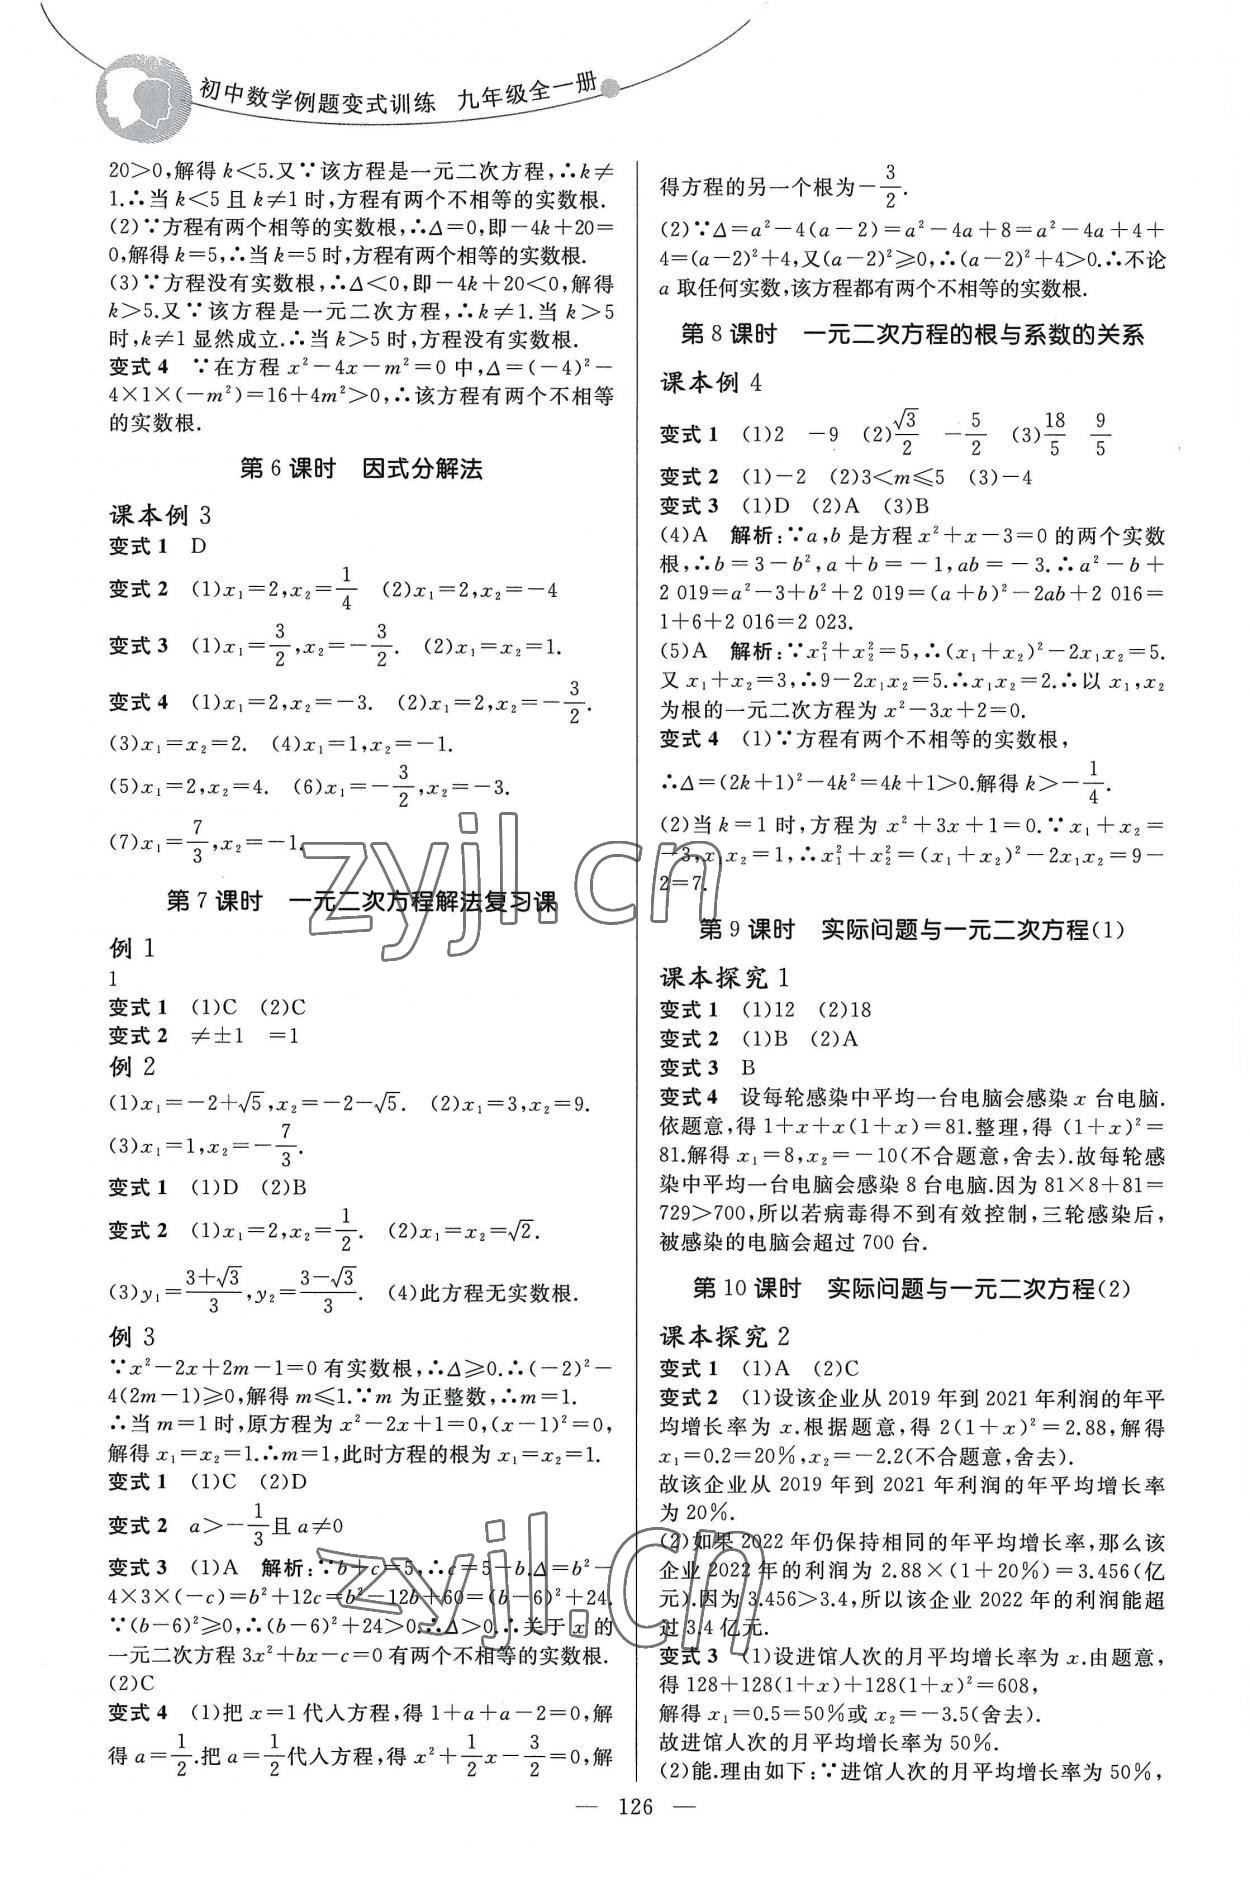 初中数学例题变式训练 九年级全一册
20>0,解得 k<5.又∵该方程是一元二次方程,∴k≠
1.∴当 k<5 且 k≠1 时,方程有两个不相等的实数根.
(2)∵方程有两个相等的实数根,∴Δ=0,即-4k+20=
0,解得 k=5,∴当 k=5 时,方程有两个相等的实数根.
(3)∵方程没有实数根,∴Δ<0,即-4k+20<0,解得
k>5.又∵该方程是一元二次方程,∴k≠1.当 k>5
时,k≠1 显然成立.∴当 k>5 时,方程没有实数根.
变式 4 ∵在方程 x²-4x-m²=0 中,Δ=(-4)²-
4×1×(-m²)=16+4m²>0,∴该方程有两个不相等
的实数根.
第 6 课时 因式分解法
课本例 3
变式 1 D
变式 2 (1)x₁=2,x₂=1/4 (2)x₁=2,x₂=-4
变式 3 (1)x₁=3/2,x₂=-3/2. (2)x₁=x₂=1.
变式 4 (1)x₁=2,x₂=-3. (2)x₁=2,x₂=-3/2.
(3)x₁=x₂=2. (4)x₁=1,x₂=-1.
(5)x₁=2,x₂=4. (6)x₁=-3/2,x₂=-3.
(7)x₁=7/3,x₂=-1.
第 7 课时 一元二次方程解法复习课
例 1
1
变式 1 (1)C (2)C
变式 2 ≠±1 =1
例 2
(1)x₁=-2+√5,x₂=-2-√5. (2)x₁=3,x₂=9.
(3)x₁=1,x₂=-7/3.
变式 1 (1)D (2)B
变式 2 (1)x₁=2,x₂=1/2. (2)x₁=x₂=√2.
(3)y₁=(3+√3)/3,y₂=(3-√3)/3. (4)此方程无实数根.
例 3
∵x²-2x+2m-1=0 有实数根,∴Δ≥0.∴(-2)²-
4(2m-1)≥0,解得 m≤1.∵m 为正整数,∴m=1.
∴当 m=1 时,原方程为 x²-2x+1=0,(x-1)²=0,
解得 x₁=x₂=1.∴m=1,此时方程的根为 x₁=x₂=1.
变式 1 (1)C (2)D
变式 2 a>-1/3且 a≠0
变式 3 (1)A 解析:∵b+c=5,∴c=5-b.Δ=b²-
4×3×(-c)=b²+12c=b²-12b+60=(b-6)²+24.
∵(b-6)²≥0,∴(b-6)²+24>0.∴Δ>0.∴关于 x 的
一元二次方程 3x²+bx-c=0 有两个不相等的实数根.
(2)C
变式 4 (1)把 x=1 代入方程,得 1+a+a-2=0,解
得 a=1/2.把 a=1/2代入方程,得 x²+1/2x-3/2=0,解
得方程的另一个根为-3/2.
(2)∵Δ=a²-4(a-2)=a²-4a+8=a²-4a+4+
4=(a-2)²+4,又(a-2)²≥0,∴(a-2)²+4>0.∴不论
a 取任何实数,该方程都有两个不相等的实数根.
第 8 课时 一元二次方程的根与系数的关系
课本例 4
变式 1 (1)2 -9 (2)√3/2 -5/2 (3)18/5 9/5
变式 2 (1)-2 (2)3<m≤5 (3)-4
变式 3 (1)D (2)A (3)B
(4)A 解析:∵a,b 是方程 x²+x-3=0 的两个实数
根,∴b=3-b²,a+b=-1,ab=-3.∴a²-b+
2 019=a²-3+b²+2 019=(a+b)²-2ab+2 016=
1+6+2 016=2 023.
(5)A 解析:∵x₁²+x₂²=5,∴(x₁+x₂)²-2x₁x₂=5.
又 x₁+x₂=3,∴9-2x₁x₂=5.∴x₁x₂=2.∴以 x₁,x₂
为根的一元二次方程为 x²-3x+2=0.
变式 4 (1)∵方程有两个不相等的实数根,
∴Δ=(2k+1)²-4k²=4k+1>0.解得 k>-1/4.
(2)当 k=1 时,方程为 x²+3x+1=0.∵x₁+x₂=
-3,x₁x₂=1,∴x₁²+x₂²=(x₁+x₂)²-2x₁x₂=9-
2=7.
第 9 课时 实际问题与一元二次方程(1)
课本探究 1
变式 1 (1)12 (2)18
变式 2 (1)B (2)A
变式 3 B
变式 4 设每轮感染中平均一台电脑会感染 x 台电脑.
依题意,得 1+x+x(1+x)=81.整理,得 (1+x)²=
81.解得 x₁=8,x₂=-10(不合题意,舍去).故每轮感
染中平均一台电脑会感染 8 台电脑.因为 81×8+81=
729>700,所以若病毒得不到有效控制,三轮感染后,
被感染的电脑会超过 700 台.
第 10 课时 实际问题与一元二次方程(2)
课本探究 2
变式 1 (1)A (2)C
变式 2 (1)设该企业从 2019 年到 2021 年利润的年平
均增长率为 x.根据题意,得 2(1+x)²=2.88,解得
x₁=0.2=20%,x₂=-2.2(不合题意,舍去).
故该企业从 2019 年到 2021 年利润的年平均增长率
为 20%.
(2)如果 2022 年仍保持相同的年平均增长率,那么该
企业 2022 年的利润为 2.88×(1+20%)=3.456(亿
元).因为 3.456>3.4,所以该企业 2022 年的利润能超
过 3.4 亿元.
变式 3 (1)设进馆人次的月平均增长率为 x.由题意,
得 128+128(1+x)+128(1+x)²=608,
解得 x₁=0.5=50%或 x₂=-3.5(舍去).
故进馆人次的月平均增长率为 50%.
(2)能.理由如下:∵进馆人次的月平均增长率为 50%,
— 126 —
zyjl.cn
zyjl.cn